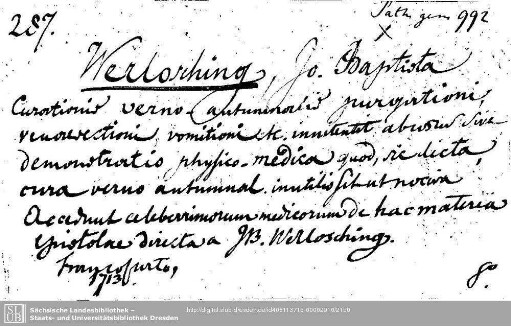 287.
Path. gen 992
X
Werlosching, Jo. Baptista
Curationis verno-autumnalis purgationi,
venaesectioni, vomitioni etc. innitentis abusus sive
demonstratio physico-medica quod, sic dicta,
cura verno autumnal. inutilis sit ut nociva
Accedunt celeberrimorum medicorum de hac materia
Epistolae directa a JB. Werlosching.
Francofurto,
1713.
8°
Sächsische Landesbibliothek –
Staats- und Universitätsbibliothek Dresden